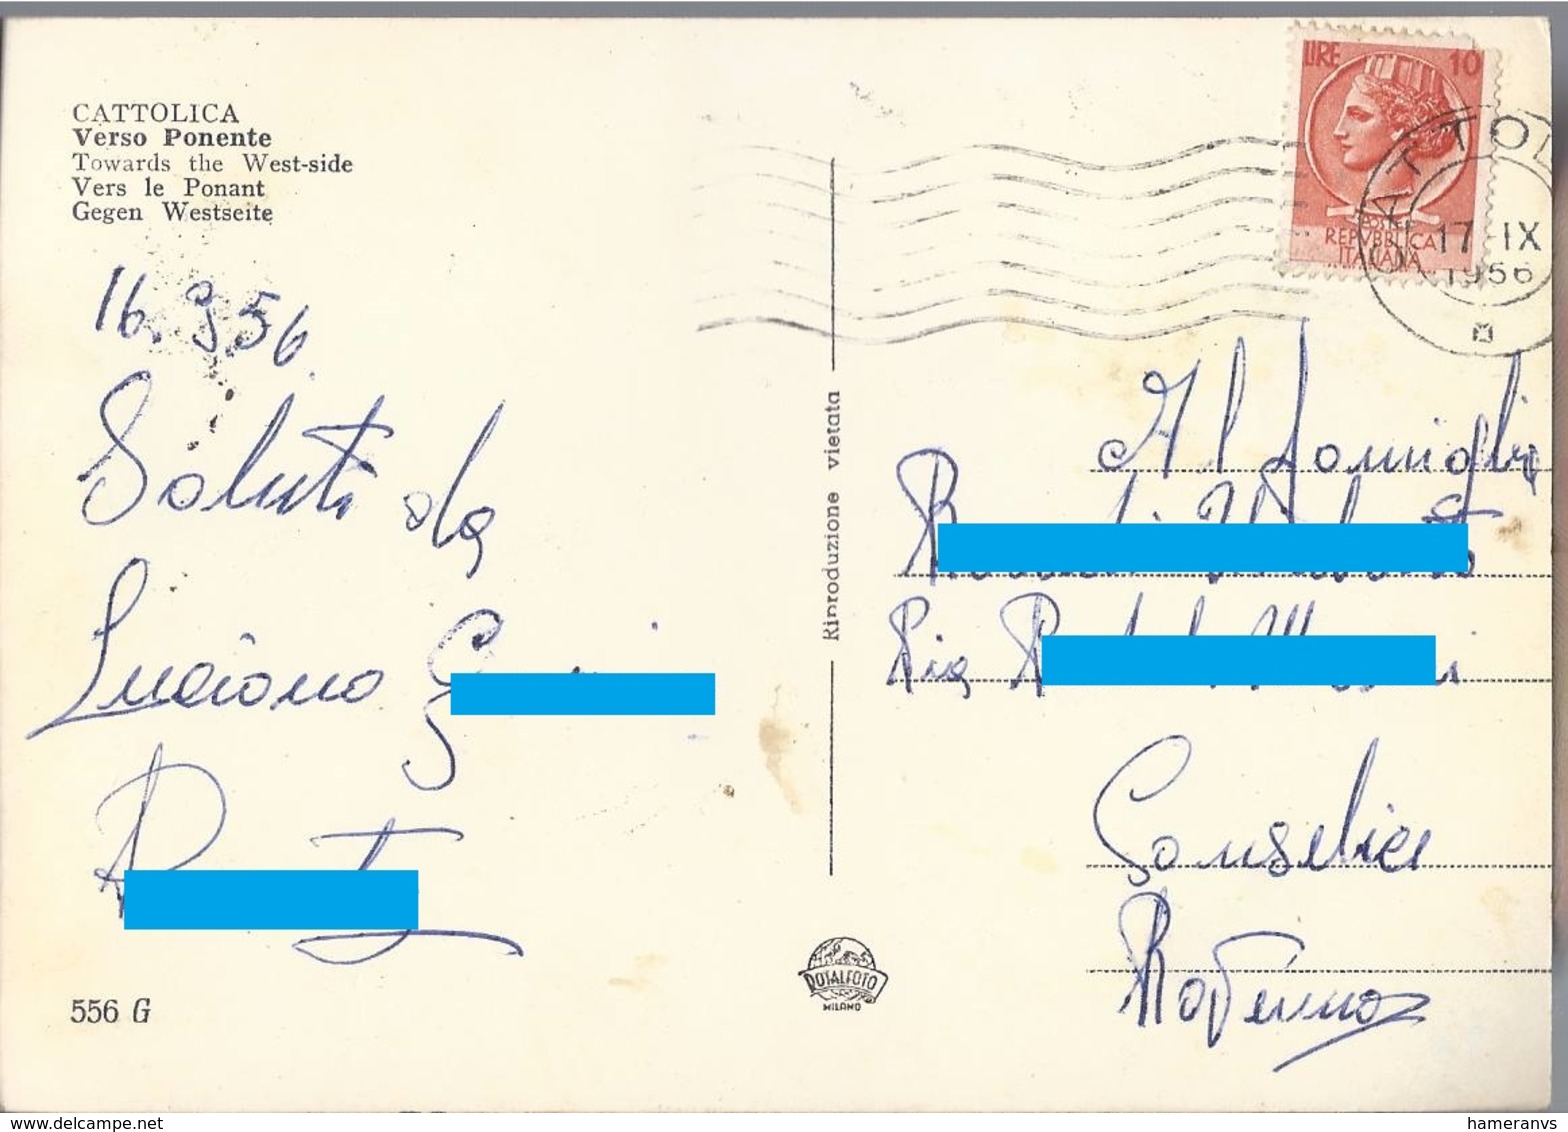 CATTOLICA
Verso Ponente
Towards the West-side
Vers le Ponant
Gegen Westseite
16.9.56
Saluti da
Luciano G
556 G
Riproduzione vietata
ROTALFOTO
MILANO
LIRE 10
POSTE
REPVBBLICA
ITALIANA
CATTOL
17 IX
1956
Al Famiglia
Via
Conselice
Ravenna
delcampe.net
hameranvs